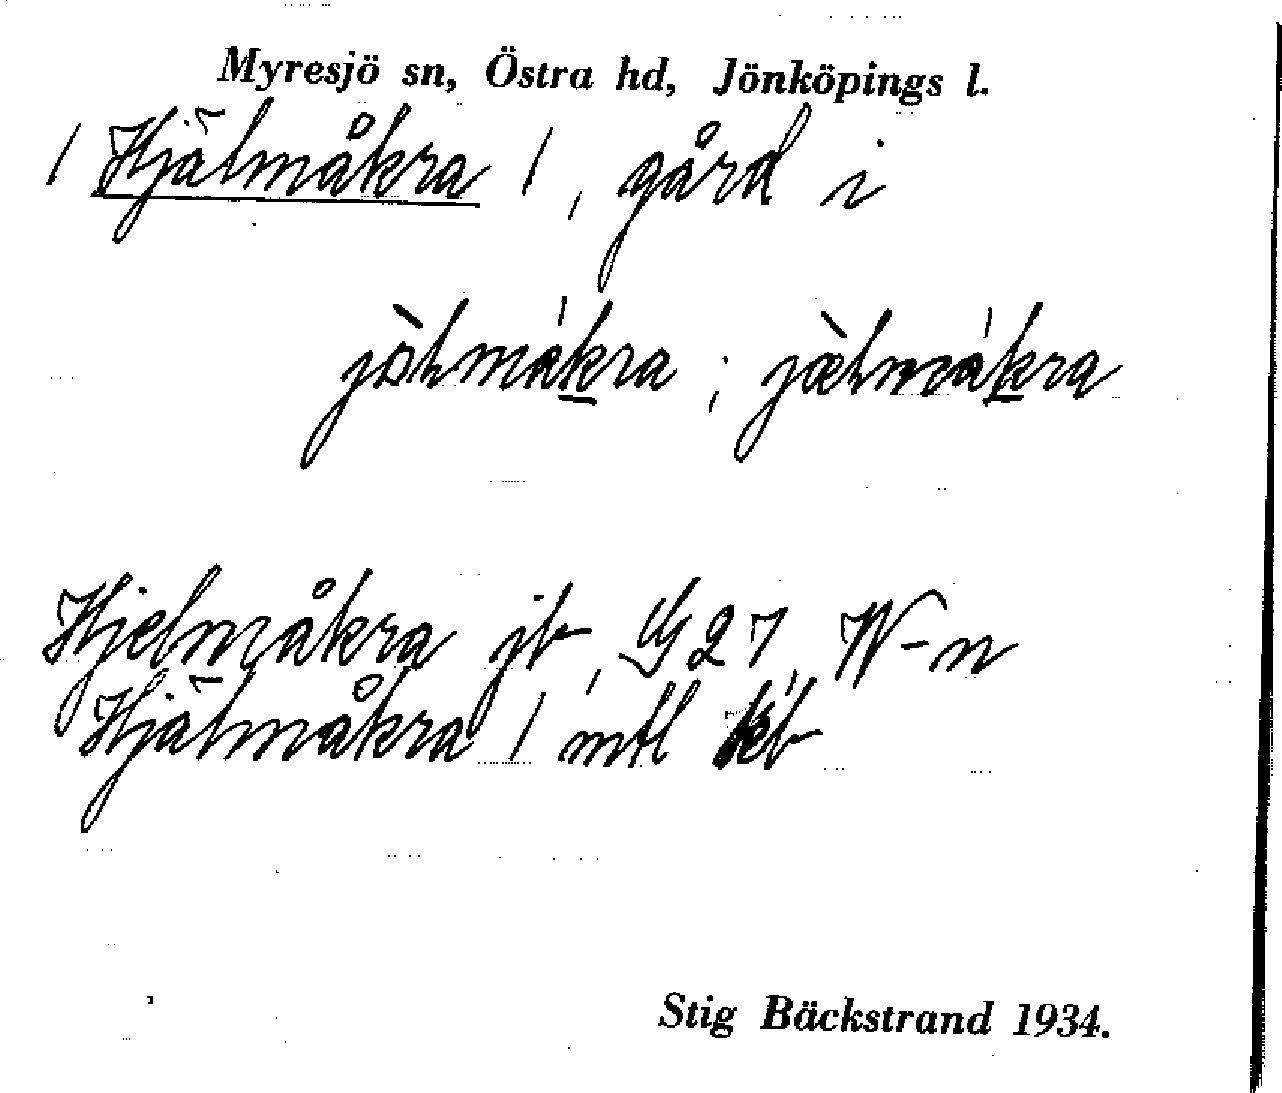 Myresjö sn, Östra hd, Jönköpings l.
/ Hjälmåkra /, gård i
jö̀lmákra ; jæ̀lmákra
Hjelmåkra jb, G 27, W-n
Hjälmåkra 1 mtl kb
Stig Bäckstrand 1934.